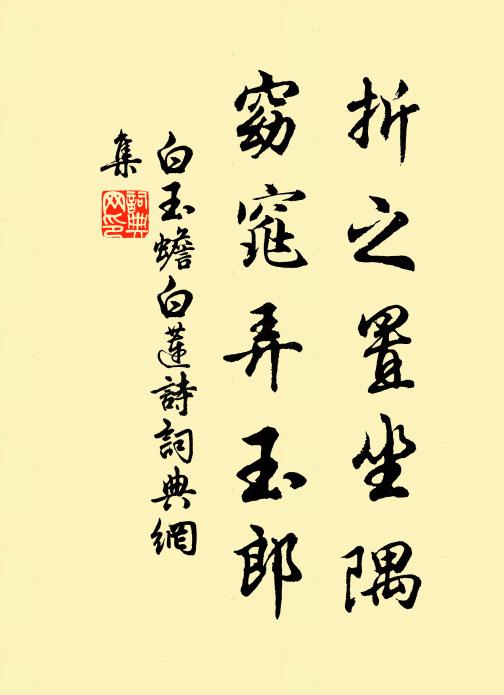 折之置坐隅
窈窕弄玉郎
白玉蟾白蓮詩詞典網
集
詞典網印